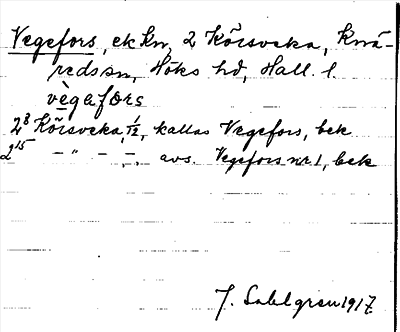 Vegefors, ek kn, 2 Körsveka, Knä-
redssn, Höks hd, Hall. l.
vègafòrs
2⁸ Körsveka, 1/2, kallas Vegefors, bek
2¹⁵ – " – –,–, avs. Vegefors nr 1, bek
J. Sahlgren 1917.